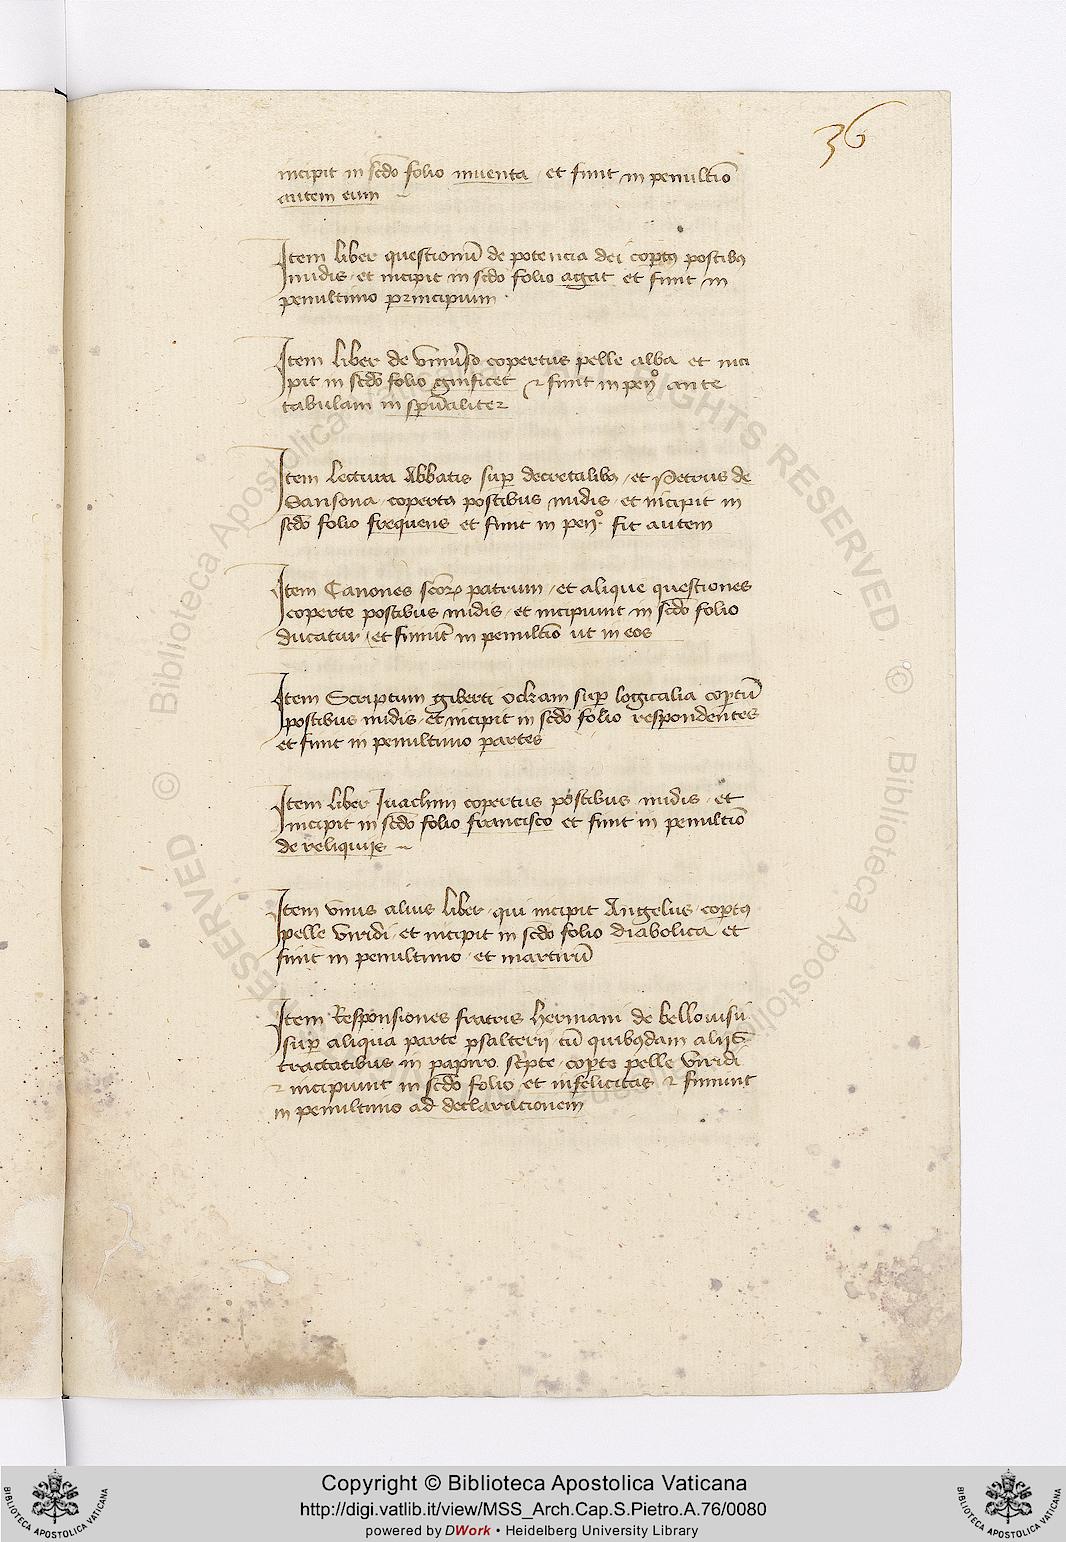 36
incipit in scdo folio inuenta et finit in penultio
autem eum
Item liber questionũ de potencia dei coptꝰ postibꝰ
nudis et incipit in scdo folio agat et finit in
penultimo principium
Item liber de copertus pelle alba et inci
pit in scdo folio ⁊ finit in penº ante
tabulam in spũaliter
Item lectura Abbatis sup decretalibꝰ et Petrus de
Sansona coperta postibus nudis et incipit in
scdo folio frequens et finit in penº fit autem
Item Canones scõrꝫ patrum et alique questiones
coperte postibus nudis et incipiunt in scdo folio
ducatur et finiũt in penultio ut in eos
Item Scriptum giberti ockam sup logicalia coptũ
postibus nudis et incipit in scdo folio respondentes
et finit in penultimo partes
Item liber Iuachim copertus postibus nudis et
incipit in scdo folio francisco et finit in penultio
de reliquijs
Item vnus alius liber qui incipit Angelus coptꝰ
pelle viridi et incipit in scdo folio diabolica et
finit in penultimo et martirũ
Item Responsiones fratris hermani de
sup aliqua parte psalterij cũ quibꝰdam alijs
tractatibus in papiro scpte copte pelle viridi
⁊ incipiunt in scdo folio et infelicitas ⁊ finiunt
in penultimo ad declaracionem
© Biblioteca Apostolica Vaticana
ALL RIGHTS RESERVED
Copyright © Biblioteca Apostolica Vaticana
http://digi.vatlib.it/view/MSS_Arch.Cap.S.Pietro.A.76/0080
powered by DWork • Heidelberg University Library
BIBLIOTECA APOSTOLICA VATICANA
BIBLIOTECA APOSTOLICA VATICANA